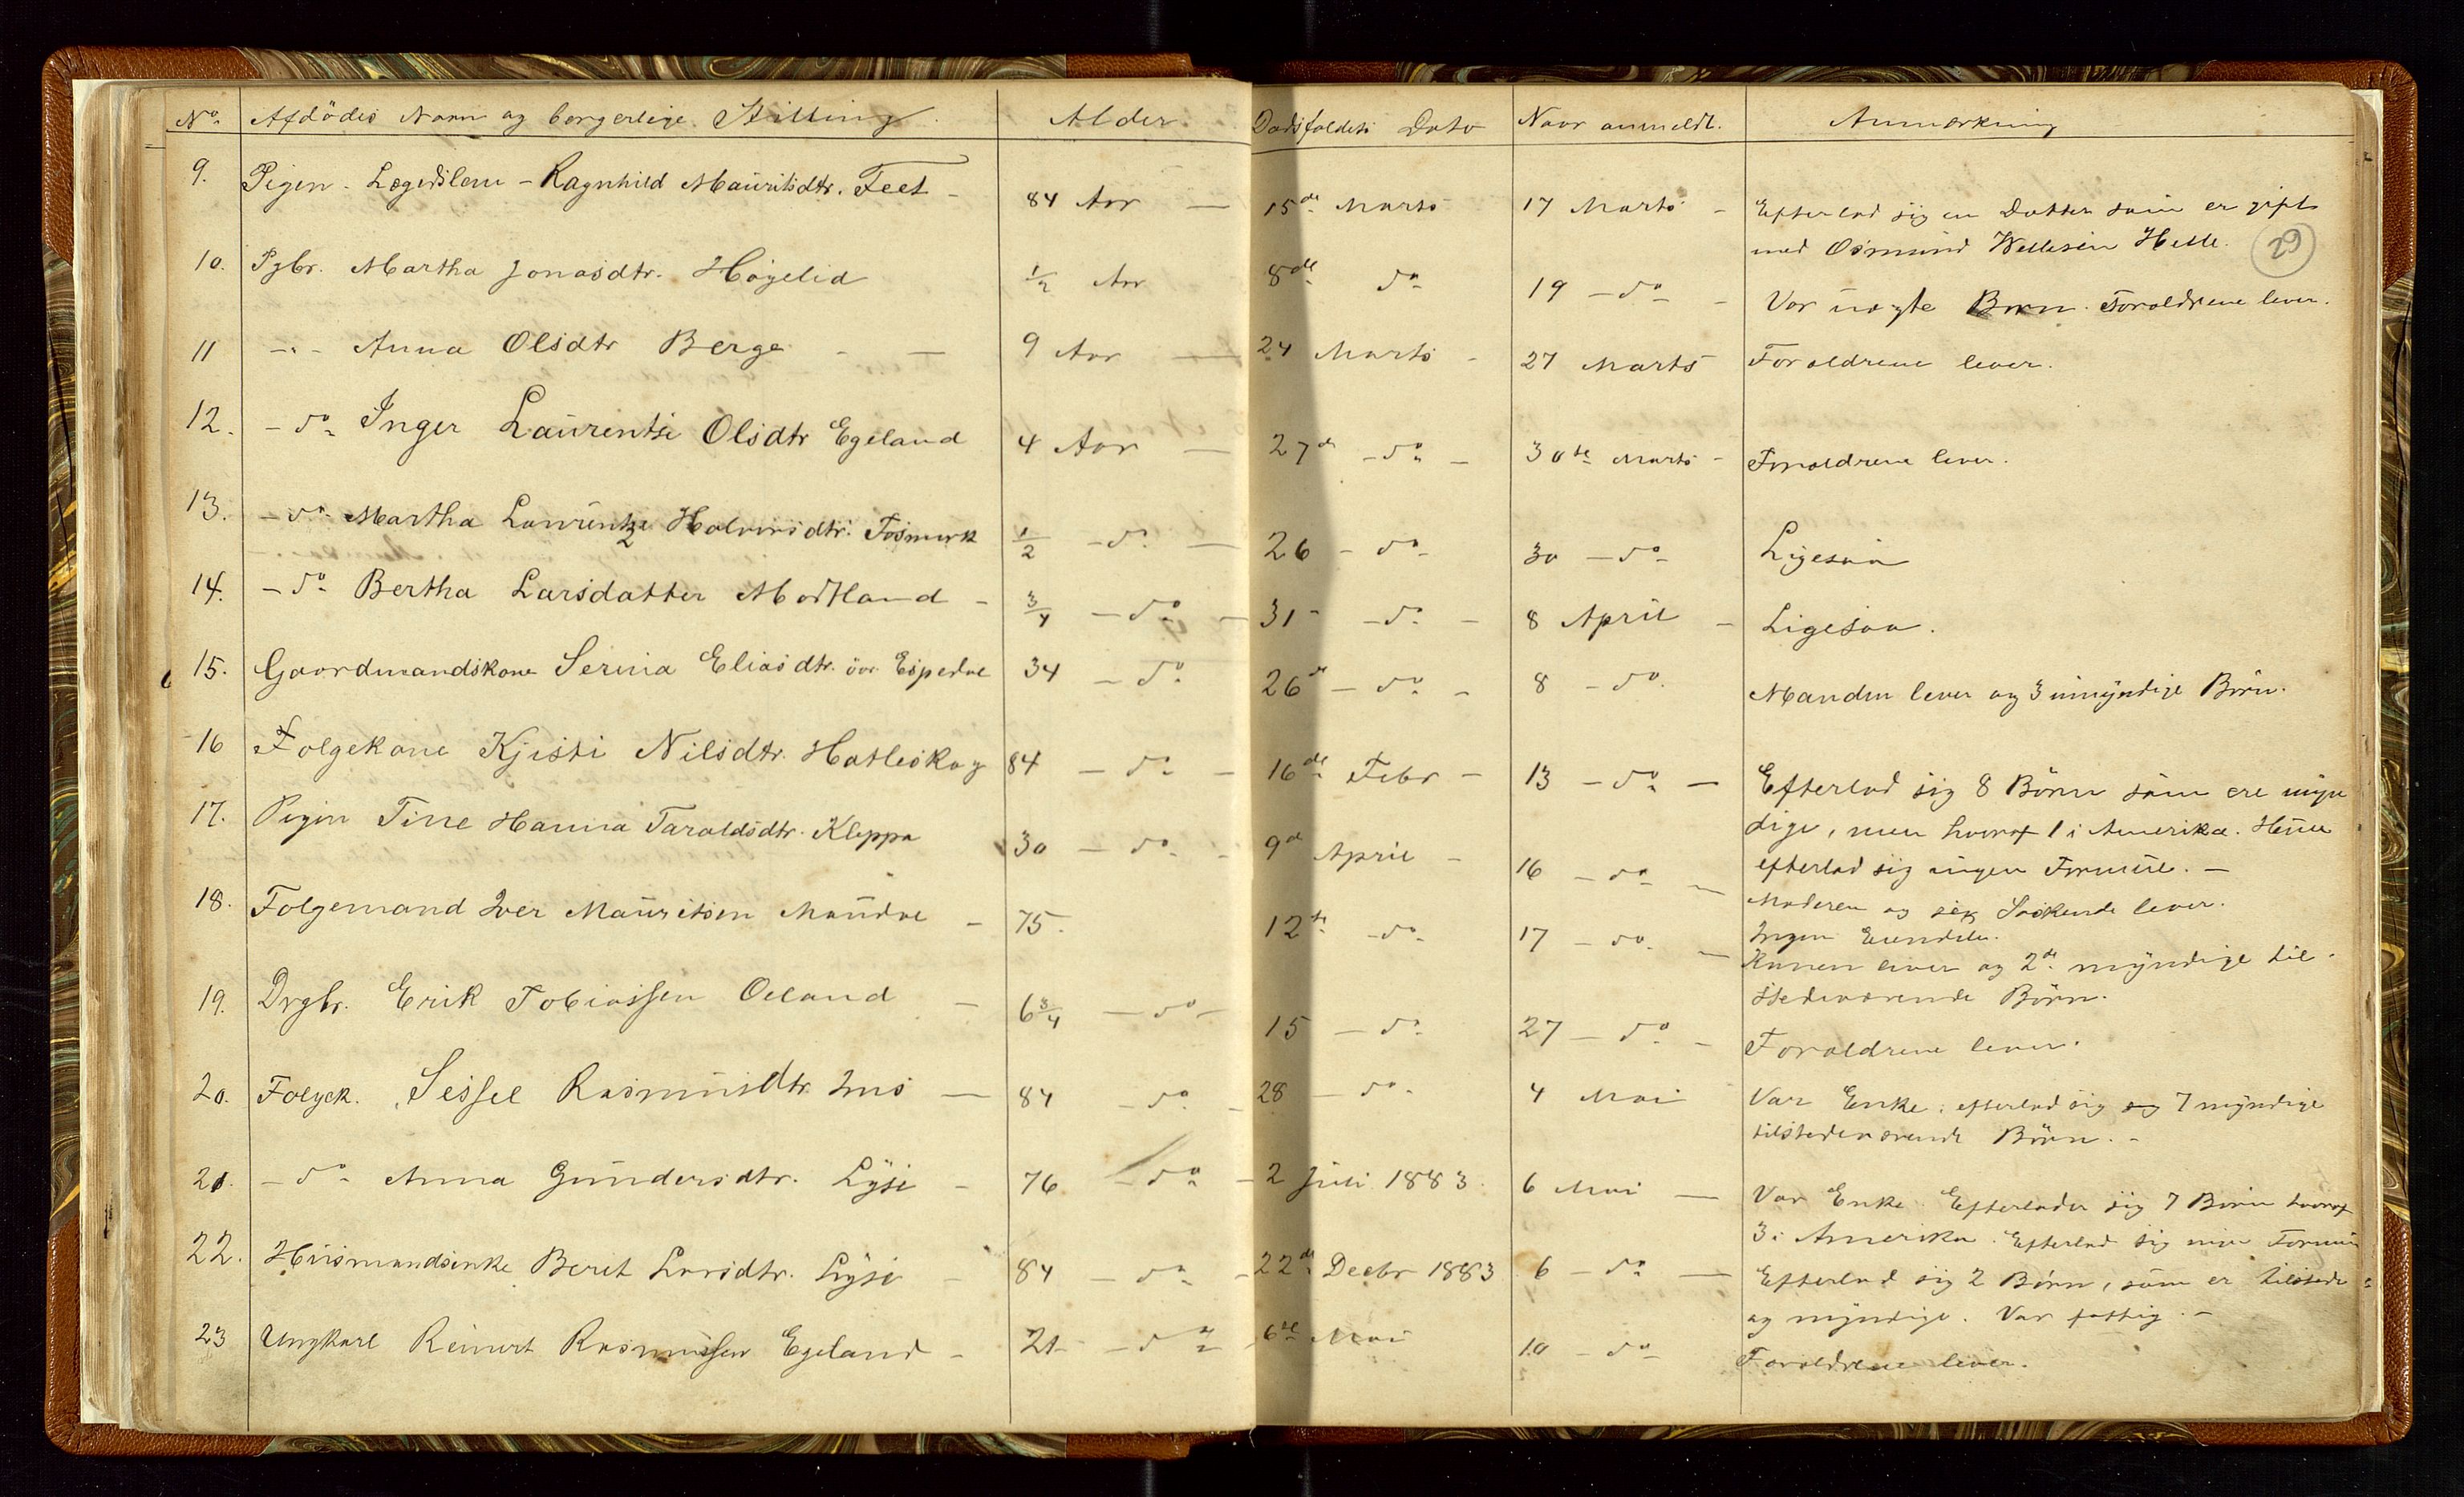 No. Afdödes Navn og borgerlige Stilling. Alder. Dødsfaldets Dato Naar anmeldt. Anmærkning
9. Pigen - Lægdslem - Ragnhild Mauritsdtr. Feet - 84 Aar — 15de Marts 17 Marts - Efterlod sig en Datter som er gift
med Osmund Helle. 29
10. Pgbr. Martha Jonasdtr. Högelid 1/2 Aar 8de do 19 - do - Var uægte Barn. Forældrene lever.
11 -"- Anna Olsdtr Berge - — 9 Aar — 24 Marts - 27 Marts Forældrene lever.
12. - do Inger Laurentse Olsdtr Egeland 4 Aar — 27de - do - 30te Marts - Forældrene lever.
13. - do Martha Laurentze Halvorsdtr. Fosmark 1/2 - do — 26 - do 30 - do Ligesaa
14. - do Bertha Larsdatter Modtland - 3/4 - do - 31 - - do - 8 April - Ligesaa.
15. Gaardmandskone Serina Eliasdtr. övr. Espedal 34 - do 26de - do - 8 - do. Manden lever og 3 umyndige Börn.
16 Folgekone Kjisti Nilsdtr. Hatleskog 84 - do - 16de Febr - 13 - do - Efterlod sig 8 Börn som ere myn
dige, men hvoraf 1 i Amerika. Hun
efterlod sig ingen Formue. -
17. Pigen Tine Hanna Taraldsdtr. Kleppa 30 - do - 9de April - 16 - do - Moderen og sex Söskende lever.
Ingen Eiendele.
18. Folgemand Iver Mauritsen Maudal - 75. 12te - do 17 - do. - Konen lever og 2de myndige til-
stedeværende Börn.
19. Drgbr. Erik Tobiassen Oeland - 6 3/4 - do - 15 - do 27 - do - Forældrene lever.
20. Folgek. Sessel Rasmusdtr. Ims - 84 - do - 28 - do - 4 Mai Var Enke. efterlod sig og 7 myndige
tilstedeværende Börn. -
21. - do Anna Gundersdtr. Lyse - 76 - do - 2 Juli 1883. 6 Mai - Var Enke. Efterlader sig 7 Börn hvoraf
3 i Amerika. Efterlod sig ingen Formue
22. Husmandsenke Berit Larsdtr. Lyse - 84 - do - 22de Decbr 1883 6 - do - Efterlod sig 2 Börn, som er tilstede
og myndige. Var fattig. -
23 Ungkarl Reinert Rasmussen Egeland - 21 - do 6te Mai 10 - do Forældrene lever.